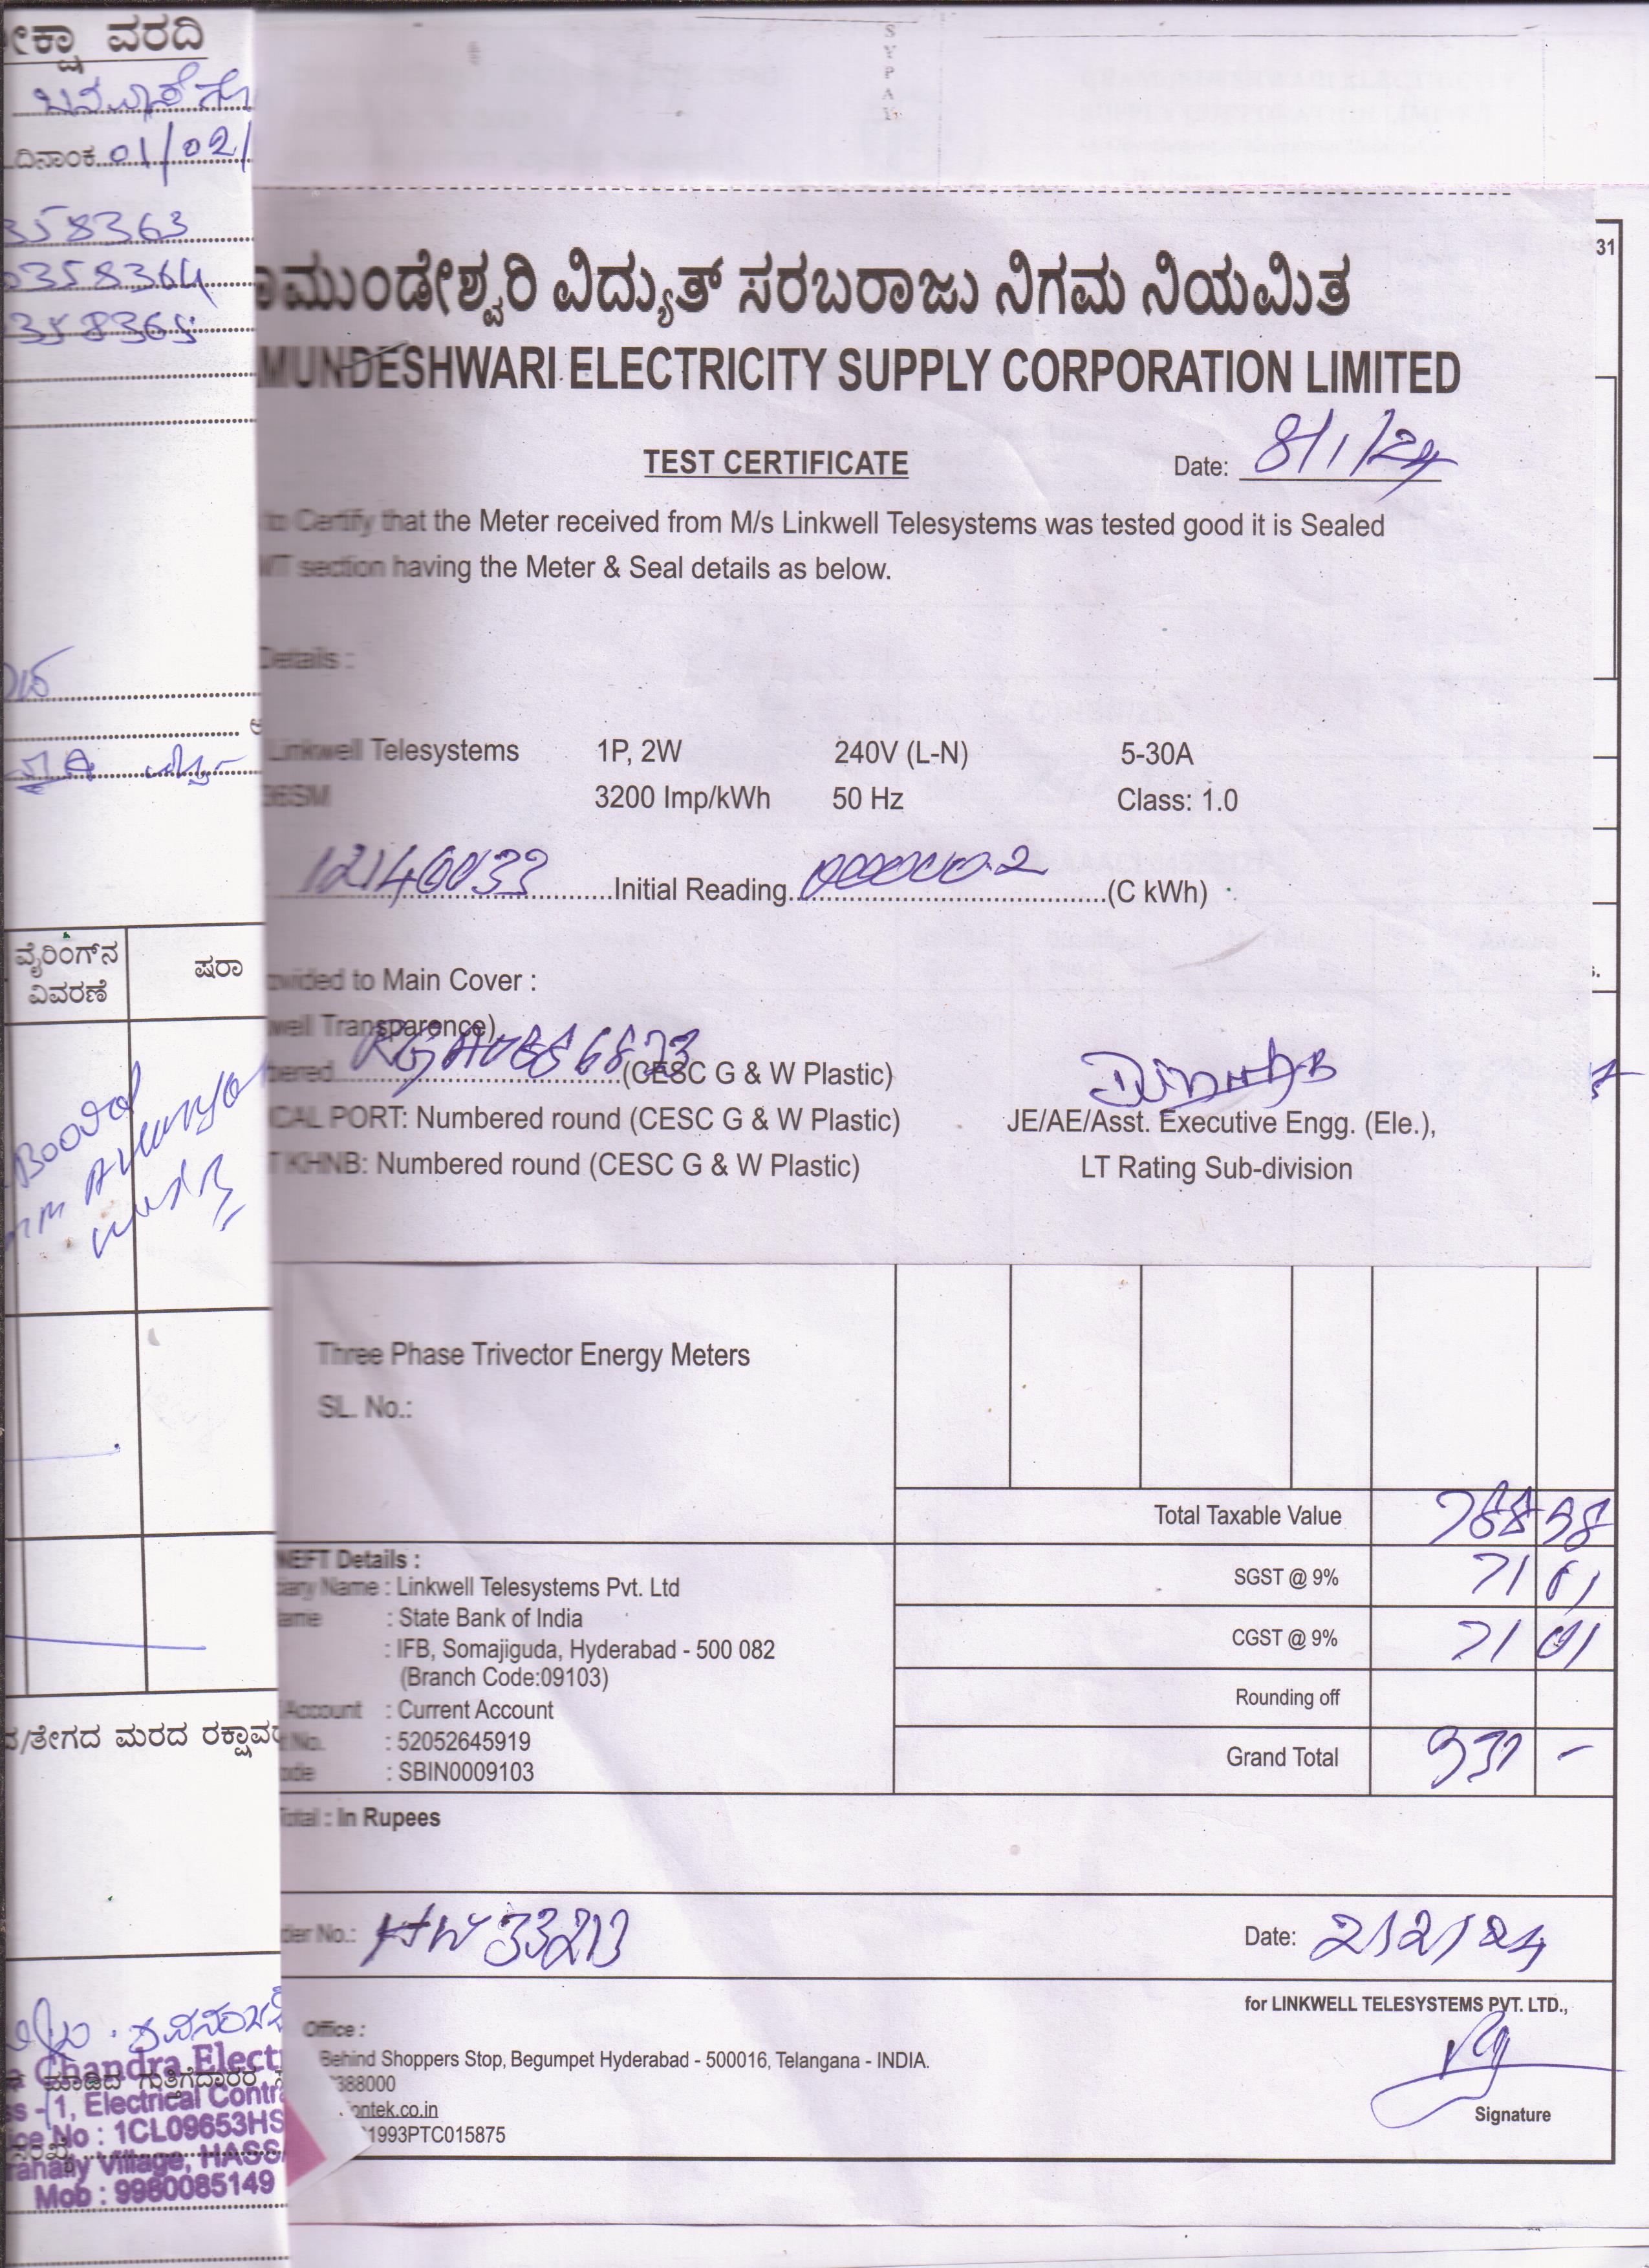 ವರದಿ
ದಿನಾಂಕ 01/02/
358363
0358364
358365
ವೈರಿಂಗ್‌ನ
ವಿವರಣೆ
ಷರಾ
/ತೇಗದ ಮರದ
ಮಾಡಿದ ಗುತ್ತಿಗೆದಾರರ
Chandra Elect
- 1, Electrical Contr
No : 1CL09653HS
Village, HASS
Mob : 9980085149
S
Y
P
A
Y
31
ಮುಂಡೇಶ್ವರಿ ವಿದ್ಯುತ್ ಸರಬರಾಜು ನಿಗಮ ನಿಯಮಿತ
MUNDESHWARI ELECTRICITY SUPPLY CORPORATION LIMITED
TEST CERTIFICATE
Date: 8/1/24
to Certify that the Meter received from M/s Linkwell Telesystems was tested good it is Sealed
section having the Meter & Seal details as below.
Details :
Linkwell Telesystems 1P, 2W 240V (L-N) 5-30A
3200 Imp/kWh 50 Hz Class: 1.0
Initial Reading (C kWh)
to Main Cover :
well Transparence)
(CESC G & W Plastic)
CAL PORT: Numbered round (CESC G & W Plastic)
JE/AE/Asst. Executive Engg. (Ele.),
KHNB: Numbered round (CESC G & W Plastic)
LT Rating Sub-division
Three Phase Trivector Energy Meters
SL. No.:
Total Taxable Value 788 98
SGST @ 9% 71 01
CGST @ 9% 71 01
Rounding off
Grand Total 931 -
NEFT Details :
Name : Linkwell Telesystems Pvt. Ltd
: State Bank of India
: IFB, Somajiguda, Hyderabad - 500 082
(Branch Code:09103)
Account : Current Account
No. : 52052645919
: SBIN0009103
Total : In Rupees
No.: HW 33213
Date: 2/2/24
for LINKWELL TELESYSTEMS PVT. LTD.,
Signature
Office :
Behind Shoppers Stop, Begumpet Hyderabad - 500016, Telangana - INDIA.
388000
iontek.co.in
1993PTC015875